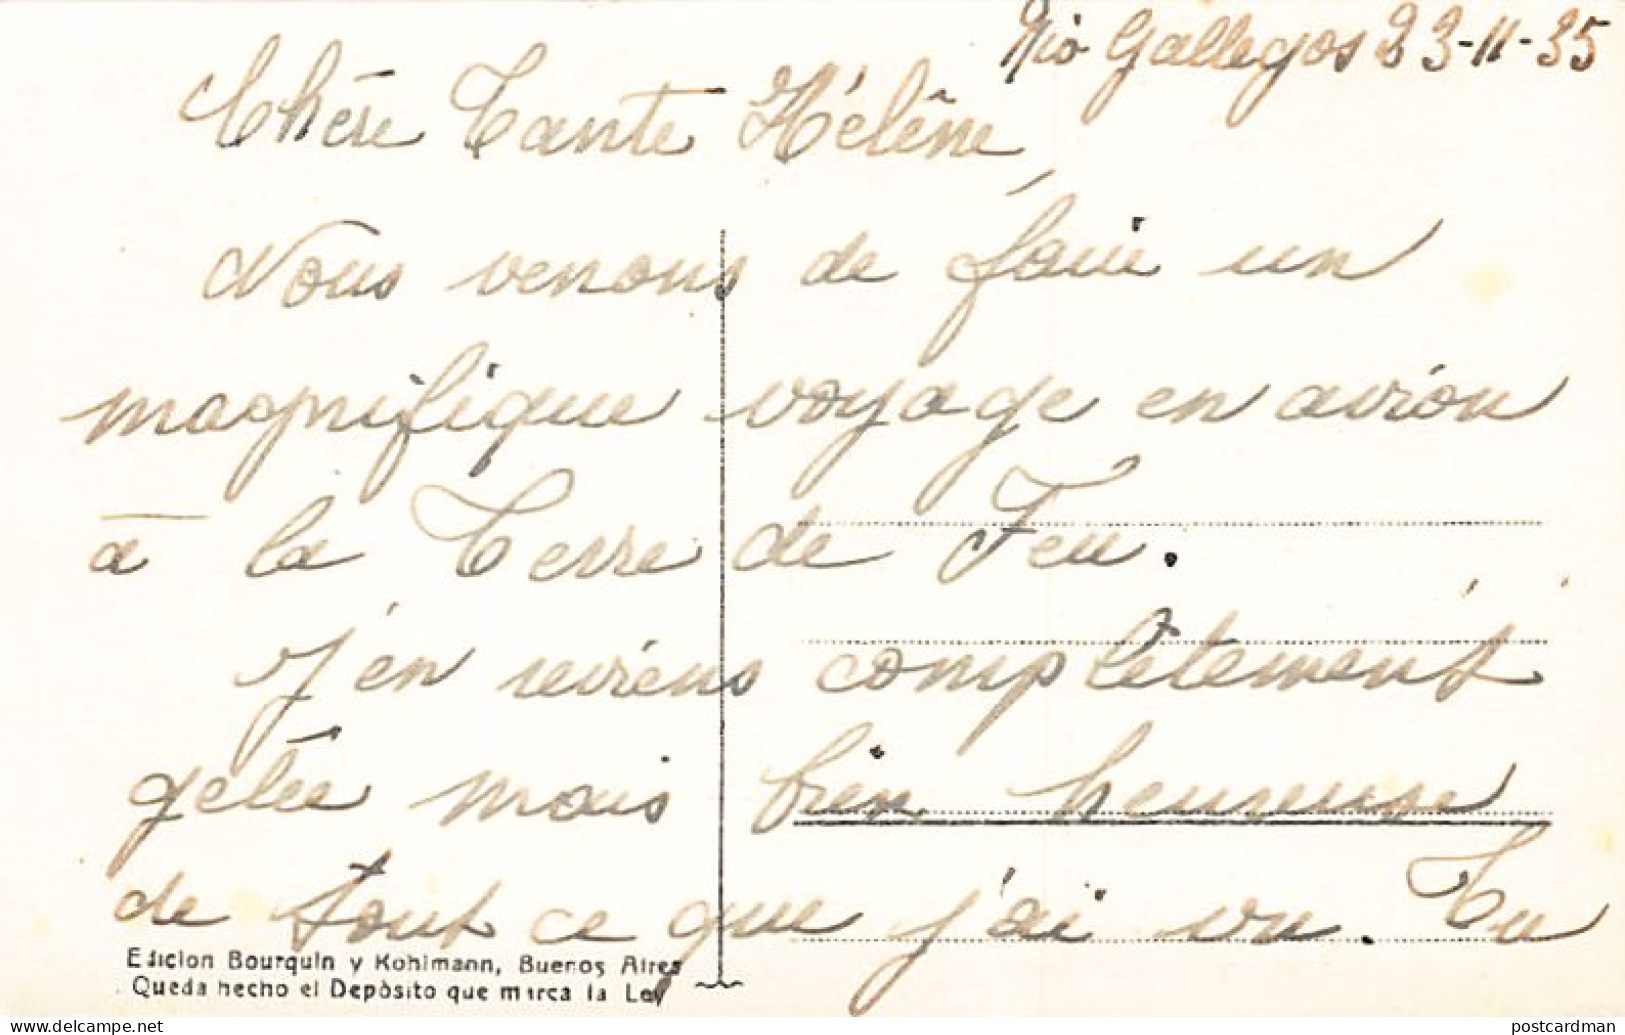 Rio Gallegos 23-11-35
Chère Tante Hélène,
Nous venons de faire un
magnifique voyage en avion
à la Terre de Feu.
J'en reviens complètement
gelée mais bien heureuse
de tout ce que j'ai vu. Tu
Edicion Bourquin y Kohlmann, Buenos Aires
Queda hecho el Depòsito que marca la Ley
www.delcampe.net
postcardman